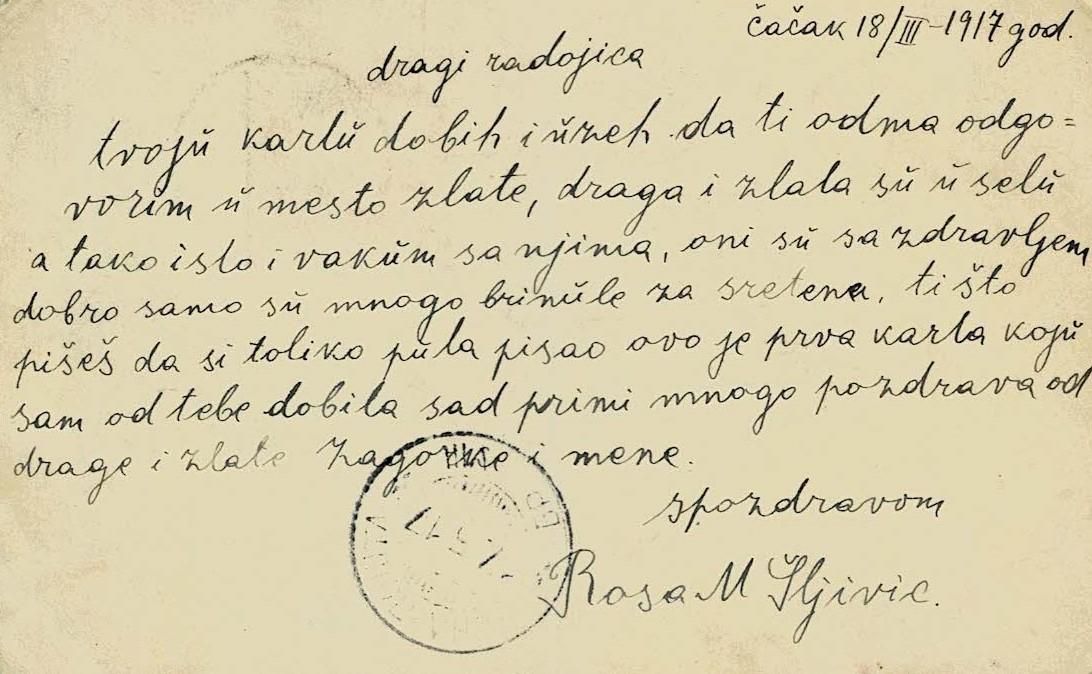 čačak 18/III-1917 god.
dragi radojica
tvojŭ kartŭ dobih i ŭzeh da ti odma odgo=
vorim ŭ mesto zlate, draga i zlata sŭ ŭ selŭ
a tako isto i vakŭm sa njima, oni sŭ sa zdravljem
dobro samo sŭ mnogo brinŭle za sretena, ti što
pišeš da si toliko pŭta pisao ovo je prva karta kojŭ
sam od tebe dobila sad primi mnogo pozdrava od
drage i zlate zagorke i mene.
spozdravom
Rosa M Šljivic.